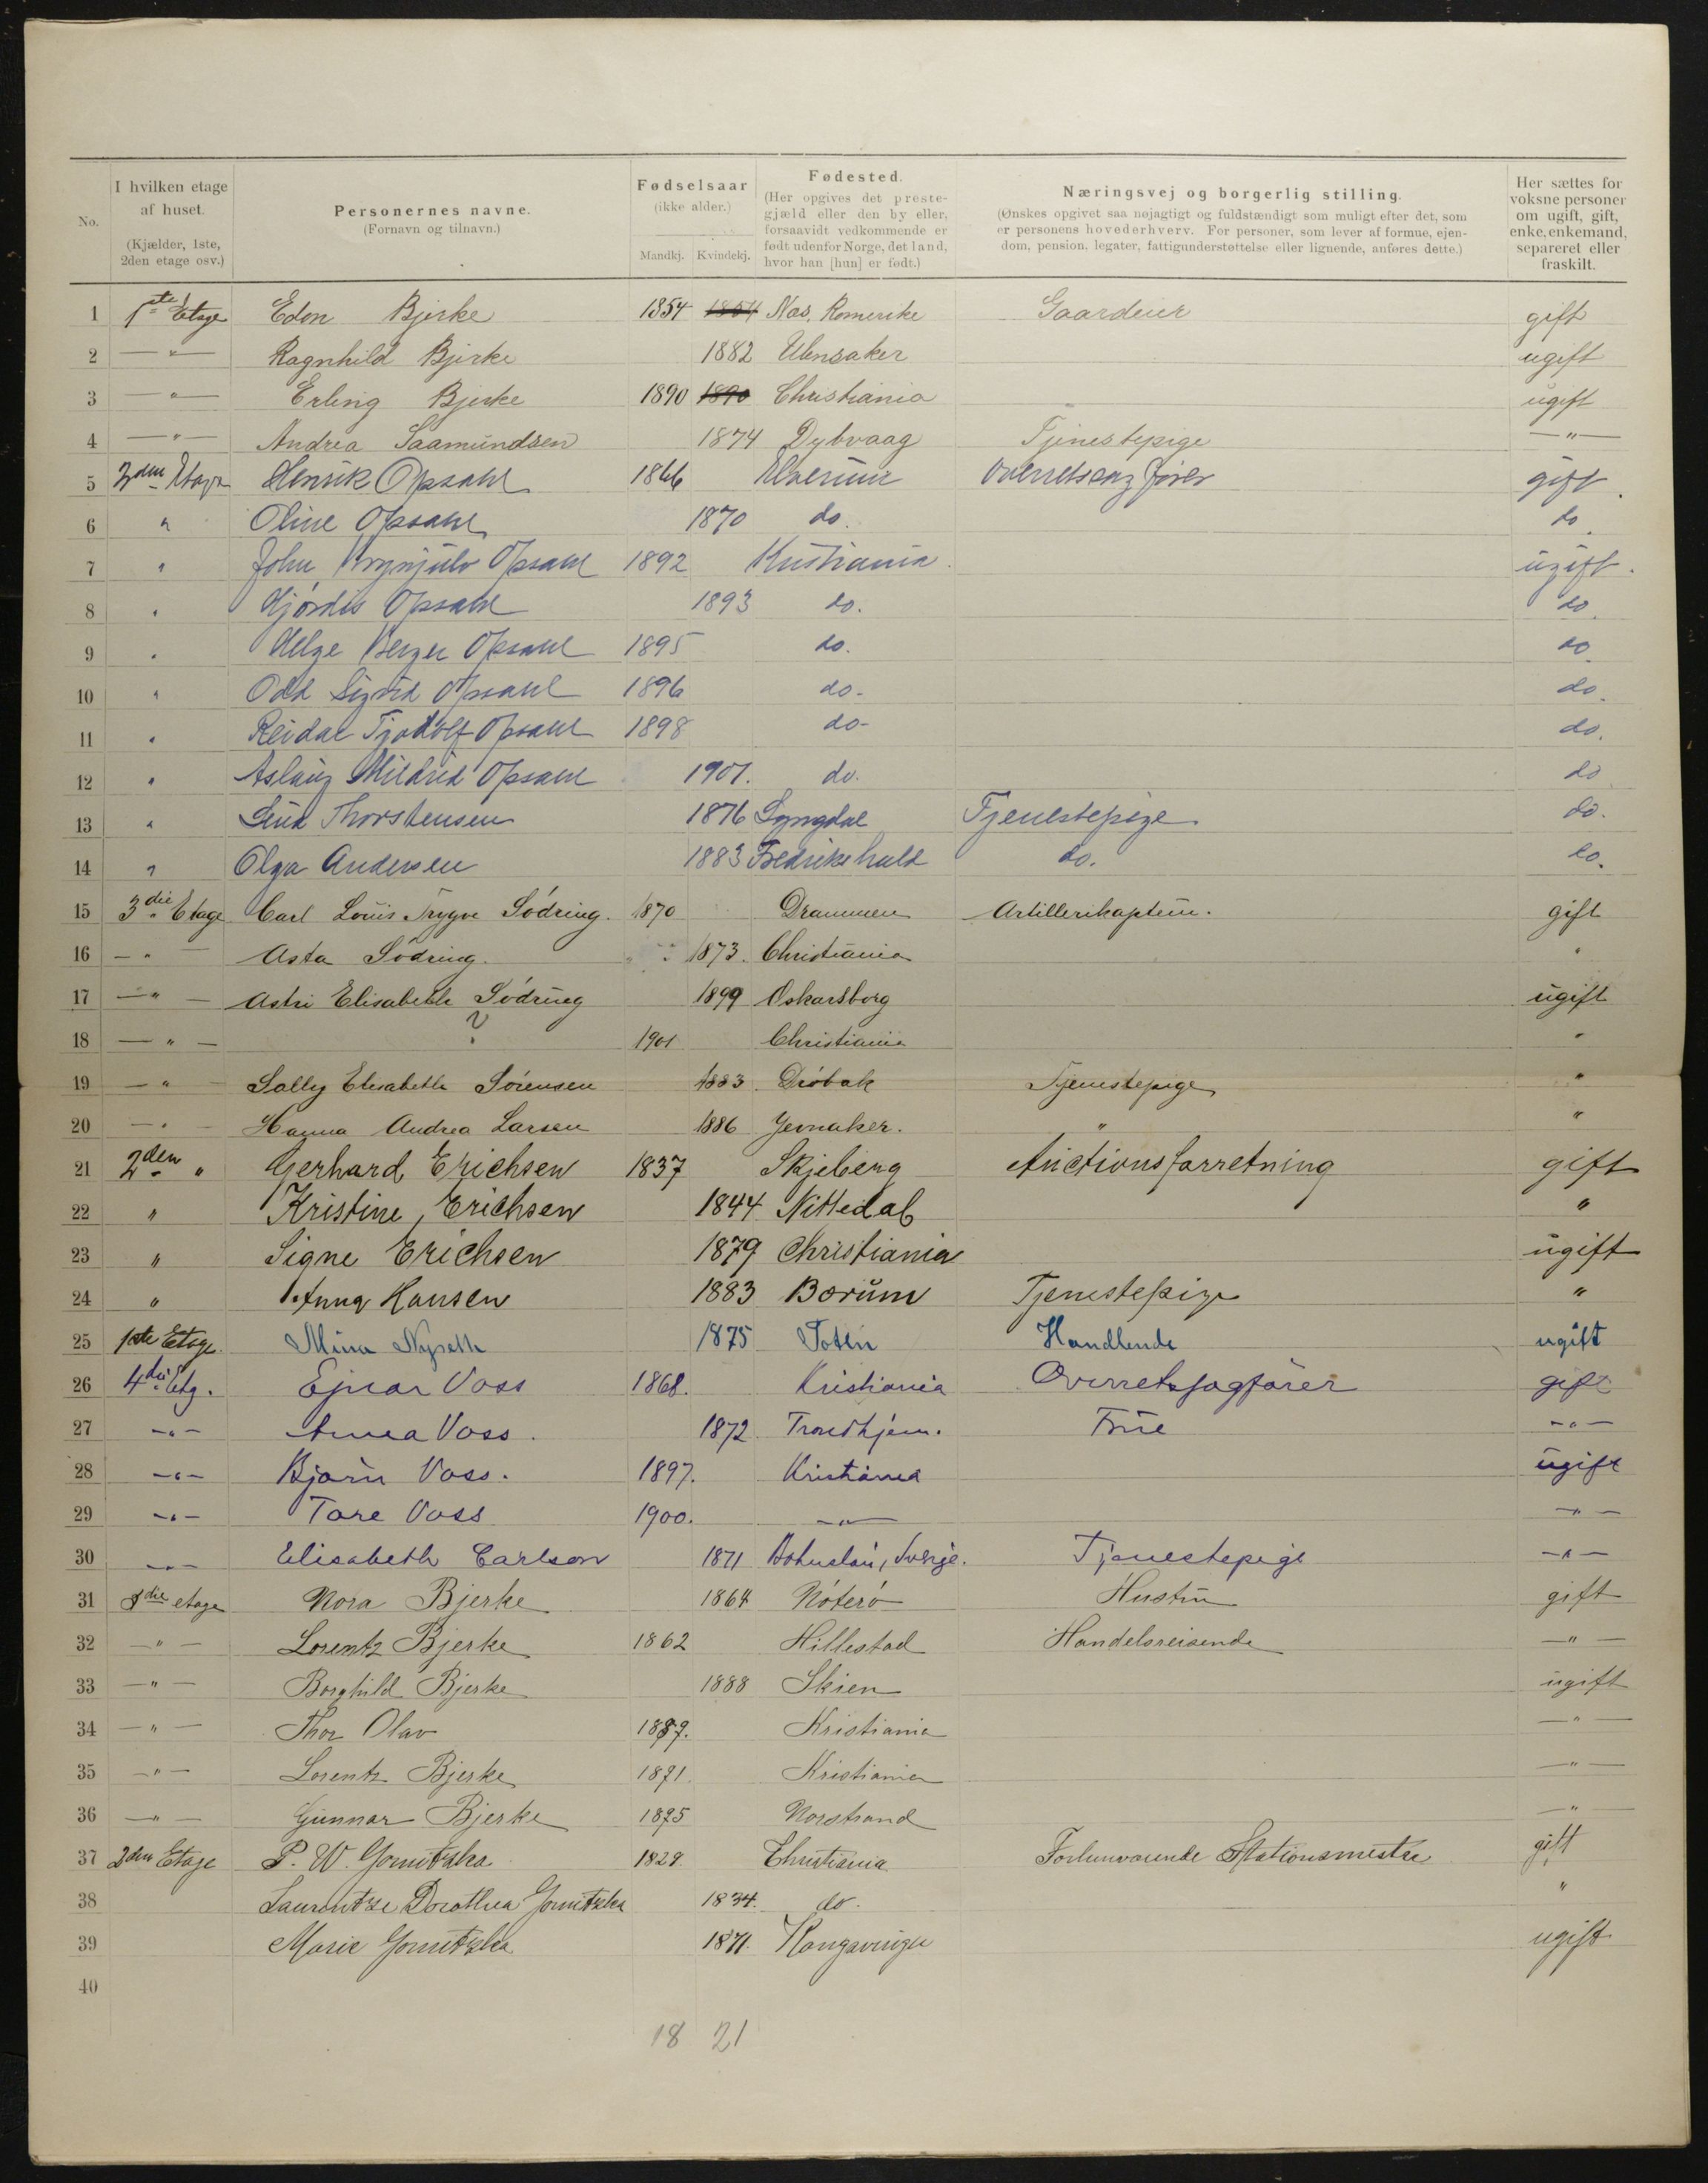 No. | I hvilken etage af huset. (Kjælder, 1ste, 2den etage osv.) | Personernes navne. (Fornavn og tilnavn.) | Fødselsaar (ikke alder.) Mandkj. Kvindekj. | Fødested. (Her opgives det prestegjæld eller den by eller, forsaavidt vedkommende er født udenfor Norge, det land, hvor han [hun] er født.) | Næringsvej og borgerlig stilling. (Ønskes opgivet saa nøjagtigt og fuldstændigt som muligt efter det, som er personens hovederhverv. For personer, som lever af formue, ejendom, pension, legater, fattigunderstøttelse eller lignende, anføres dette.) | Her sættes for voksne personer om ugift, gift, enke, enkemand, separeret eller fraskilt.
1 1ste Etage Edon Bjerke 1854 1854 Nas, Romerike Gaardeier gift
2 — " — Ragnhild Bjerke 1882 Ulensaker ugift
3 — " — Erling Bjerke 1890 1890 Christiania ugift
4 — " — Andrea Saamundsen 1874 Dybvaag Tjenestepige — " —
5 2den Etage Henrik Opsahl 1866 Elverum Overretssagfører gift.
6 " Oline Opsahl 1870 do. do.
7 " John Brynjulv Opsahl 1892 Kristiania. ugift.
8 " Hjördis Opsahl 1893 do. do.
9 " Helge Berger Opsahl 1895 do. do.
10 " Odd Sigurd Opsahl 1896 do. do.
11 " Reidar Tjodolf Opsahl 1898 do. do.
12 " Aslaug Mildrid Opsahl 1901. do. do
13 " Lina Thorstensen 1876 Lyngdal Tjenestepige do.
14 " Olga Andersen 1883 Fredrikshald do. do.
15 3die Etage Carl Louis Trygve Södring. 1870 Drammen Artillerikaptein. gift
16 — " — Asta Södring. 1873. Christiania "
17 — " — Astri Elisabeth Södring 1899 Oskarsborg ugift
18 — " — ? 1901 Christiania "
19 — " — Sally Elisabeth Sörensen 1883 Dröbak Tjenestepige "
20 — " — Hanna Andrea Larsen 1886 Jevnaker. " "
21 2den " Gerhard Erichsen 1837 Skjeberg Auctionsforretning gift
22 " Kristine Erichsen 1844 Nittedal "
23 " Signe Erichsen 1879 Christiania ugift
24 " Anna Hansen 1883 Bærum Tjenestepige "
25 1ste Etage. Mina Nyseth 1875 Toten Handlende ugift
26 4die Etg. Ejnar Voss 1868. Kristiania Overretssagfører gift
27 — " — Anna Voss. 1872 Trondhjem. Frue — " —
28 — " — Bjørn Voss. 1897. Kristiania ugift
29 — " — Tore Voss 1900. — " — — " —
30 — " — Elisabeth Carlson 1871 Bohuslän, Sverge. Tjenestepige — " —
31 3die etage Nora Bjerke 1864 Nöterö Hustru gift
32 — " — Lorentz Bjerke 1862 Hillestad Handelsreisende — " —
33 — " — Borghild Bjerke 1888 Skien ugift
34 — " — Thor Olav 1889. Kristiania — " —
35 — " — Lorentz Bjerke 1891. Kristiania — " —
36 — " — Gunnar Bjerke 1895 Norstrand — " —
37 2den Etage P. W. Gomitzka 1829. Christiania Forhenværende Stationsmester gift
38 Laurentze Dorothea Gomitzka 1834. do. "
39 Marie Gomitzka 1871. Kongsvinger ugift
40
18 21